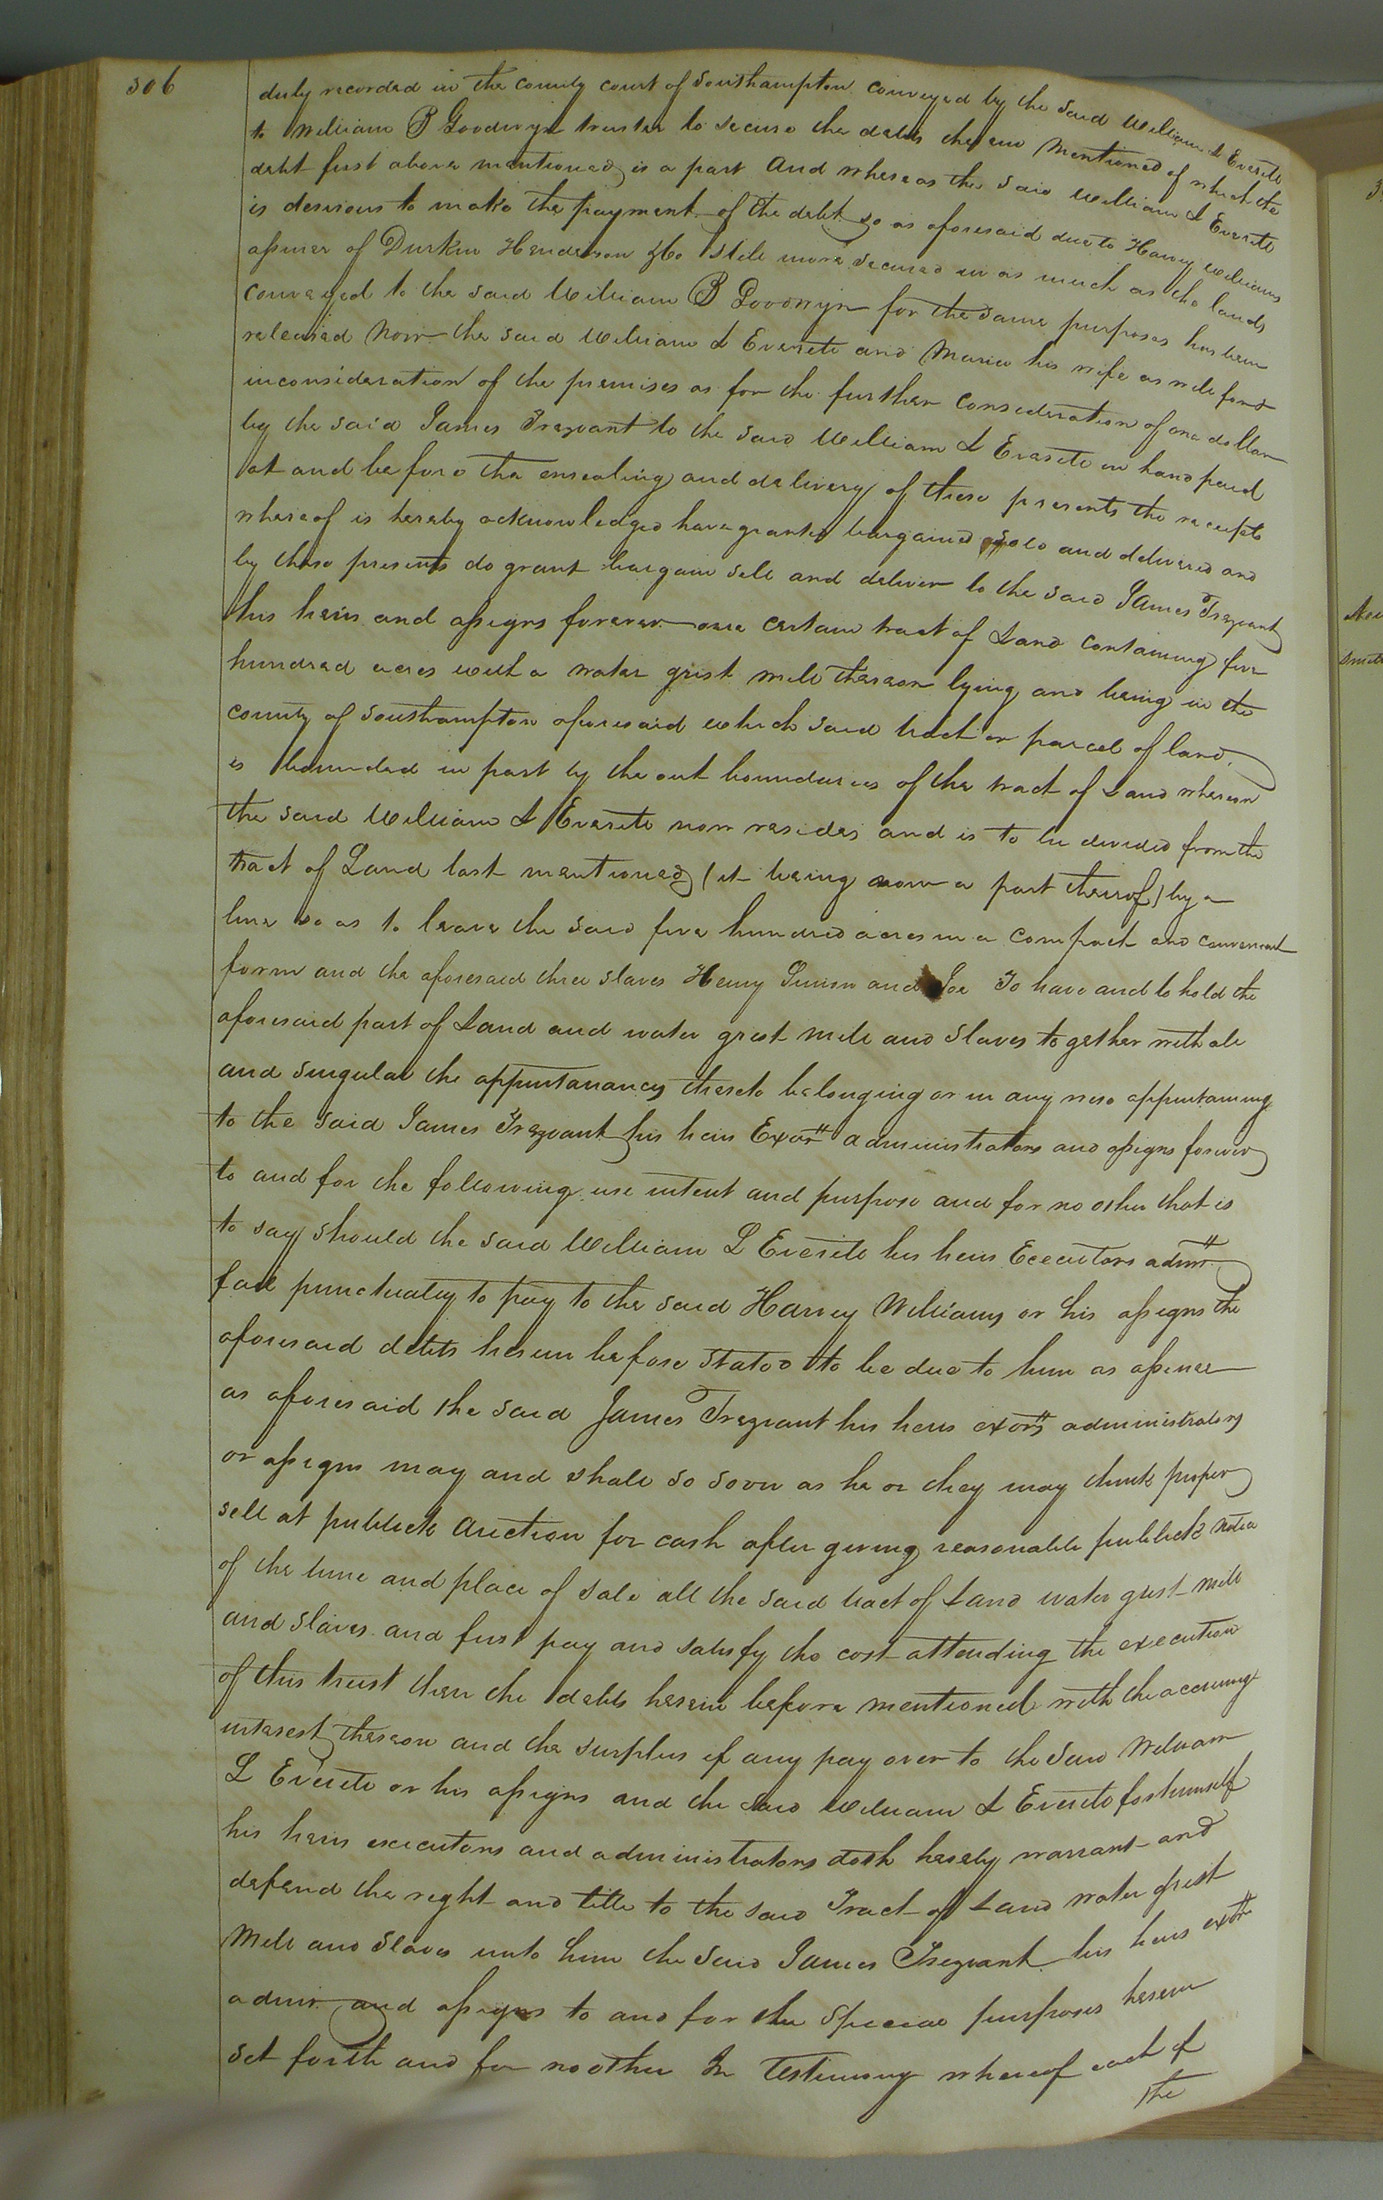 306
duly recorded in the county court of Southampton conveyed by the said William L Everite
to William B Goodwyn trustee to secure the debts therein mentioned of which the
debt first above mentioned is a part And whereas the said William L Everite
is desirous to make the payment of the debt so as aforesaid due to Harvey Williams
assinee of Durkin Henderson &Co still more secured in as much as the lands
conveyed to the said William B Goodwyn for the same purposes has been
released Now the said William L Everite and Maria his wife as well for &
inconsideration of the premises as for the further consideration of one dollar
by the said James Trezvant to the said William L Everite in hand paid
at and before the ensealing and delivery of these presents the receipt
whereof is hereby acknowledged have granted bargained sold and delivered and
by these presents do grant bargain sell and deliver to the said James Trezvant
his heirs and assigns forever one certain tract of Land containing five
hundred acres with a water grist mill thereon lying and being in the
county of Southampton aforesaid which said tract or parcel of land
is bounded in part by the out boundaries of the tract of Land whereon
the said William L Everite now resides and is to be divided from the
tract of Land last mentioned (it being now a part thereof) by a
line so as to leave the said five hundred acres in a compact and convenient
form and the aforesaid three slaves Henry and Joe To have and to hold the
aforesaid part of Land and water grist mill and slaves together with all
and singular the appurtanances thereto belonging or in any wise appurtaining
to the said James Trezvant his heirs Exors administrators and assigns forever
to and for the following use intent and purpose and for no other that is
to say should the said William L Everite his heirs Executors admrs
fail punctualy to pay to the said Harvey Williams or his assigns the
aforesaid debts herein before stated to be due to him as assinee
as aforesaid the said James Trezvant his heirs exors administrators
or assigns may and shall so soon as he or they may think proper
sell at publick Auction for cash after giving reasonable publick notice
of the time and place of sale all the said tract of Land water grist mill
and slaves and first pay and satisfy the cost attending the execution
of this trust then the debts herein before mentioned with the accruing
interest thereon and the surplus if any pay over to the said William
L Everite or his assigns and the said William L Everite for himself
his heirs executors and administrators doth hereby warrant and
defend the right and title to the said Tract of Land water grist
Mill and Slaves unto him the said James Trezvant his heirs exors
admrs and assigns to and for the special purposes herein
set forth and for no other In Testimony whereof each of
the